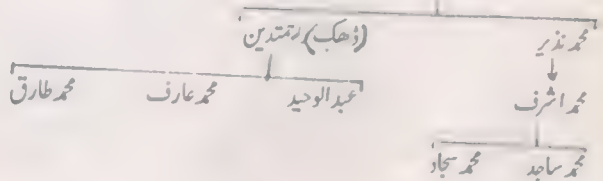 محمد نذیر (ڈھکہ) رتمتدین
محمد اشرف عبدالوحید محمد عارف محمد طارق
محمد ساجد محمد سجاد